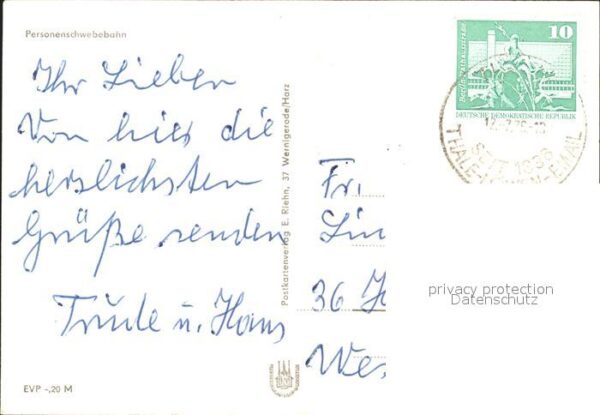 Personenschwebebahn
Ihr Lieben
Von hier die
herzlichsten
Grüße senden
Trude u. Hans
EVP -,20 M
Postkartenverlag E. Riehn, 37 Wernigerode/Harz
10
DEUTSCHE DEMOKRATISCHE REPUBLIK
SEIT 1836
THALE
EMAIL
Fr.
Lin
36 H
Wes
privacy protection
Datenschutz